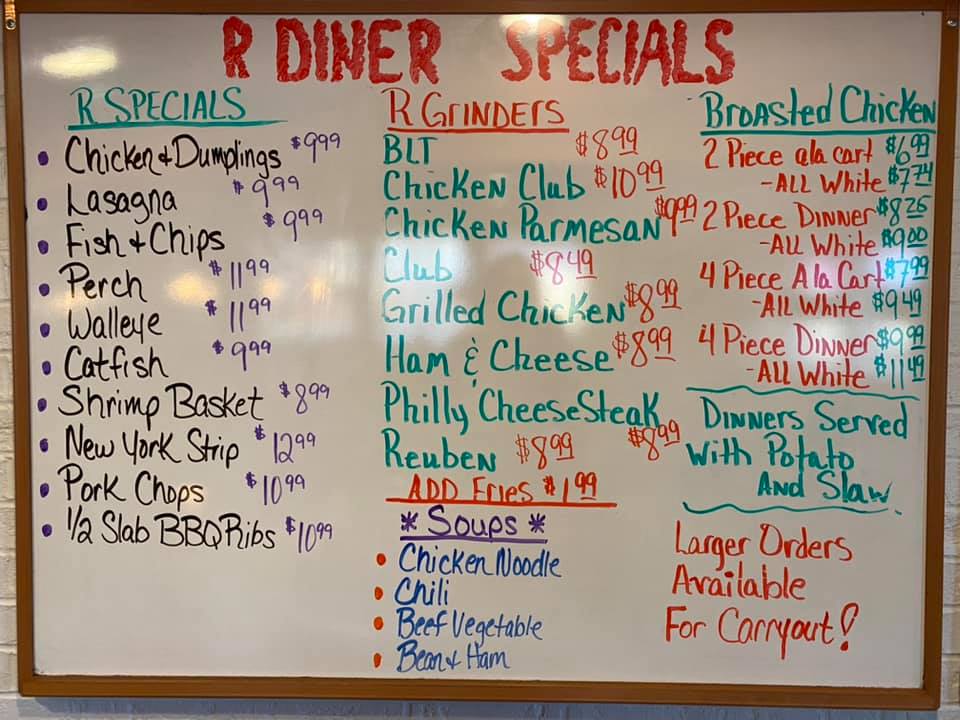 R DINER SPECIALS
R SPECIALS
• Chicken & Dumplings $9.99
• Lasagna $9.99
• Fish & Chips $9.99
• Perch $11.99
• Walleye $11.99
• Catfish $9.99
• Shrimp Basket $8.99
• New York Strip $12.99
• Pork Chops $10.99
• 1/2 Slab BBQ Ribs $10.99
R GRINDERS
BLT $8.99
Chicken Club $10.99
Chicken Parmesan $9.99
Club $8.49
Grilled Chicken $8.99
Ham & Cheese $8.99
Philly CheeseSteak $8.99
Reuben $8.99
ADD Fries $1.99
* Soups *
• Chicken Noodle
• Chili
• Beef Vegetable
• Bean & Ham
Broasted Chicken
2 Piece ala cart $6.99
-ALL White $7.74
2 Piece Dinner $8.25
-ALL White $9.00
4 Piece Ala Cart $7.99
-ALL White $9.49
4 Piece Dinner $9.99
-ALL White $11.49
Dinners Served
With Potato
And Slaw
Larger Orders
Available
For Carryout!